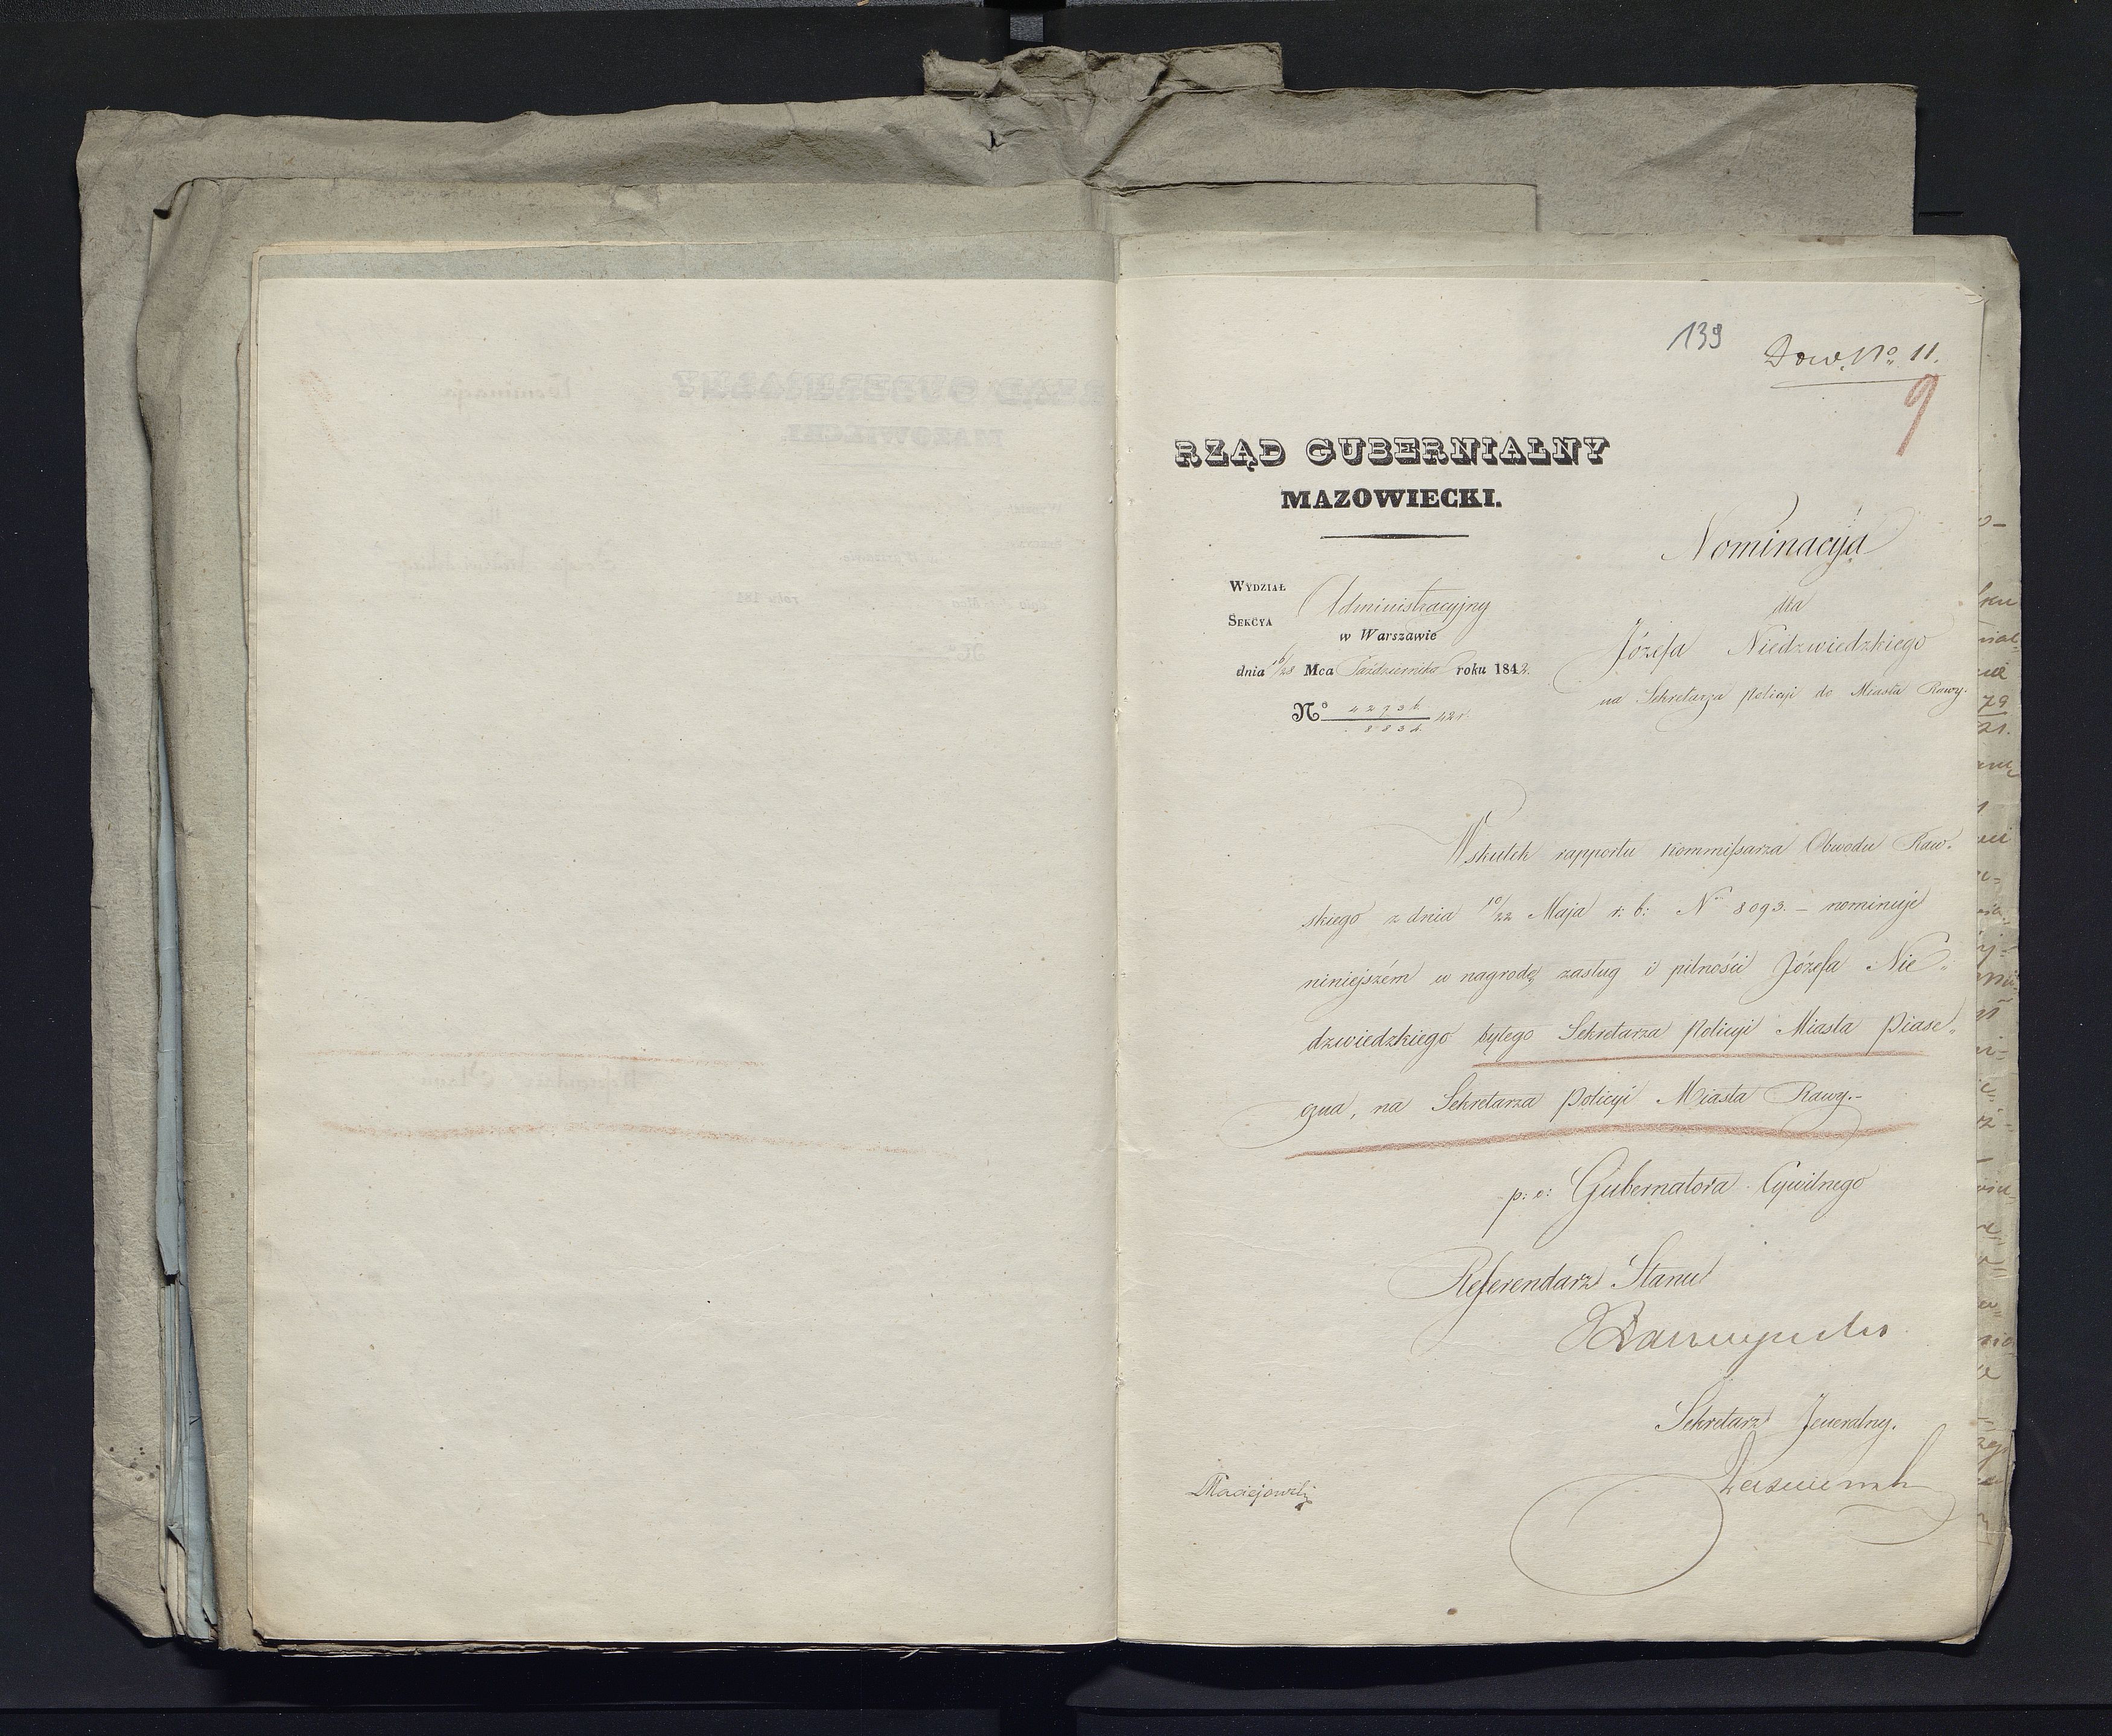 139
Dow. No. 11.
9
RZĄD GUBERNIALNY
MAZOWIECKI.
Nominacija
dla
Józefa Niedzwiedzkiego
na Sekretarza Policyi do Miasta Rawy.
WYDZIAŁ Administracyjny
SEKCYA
w Warszawie
dnia 16/28 Mca Października roku 1842.
No
Wskutek rapportu Kommissarza Obwodu Raw-
skiego z dnia 10/22 Maja r: b: No 8093. – nominuje
niniejszém w nagrodę zasług i pilności Józefa Nie-
dzwiedzkiego byłego Sekretarza Policyi Miasta Piase-
czna, na Sekretarza Policyi Miasta Rawy.–
p: o: Gubernatora Cywilnego
Referendarz Stanu
Sekretarz Jeneralny.
Maciejowski